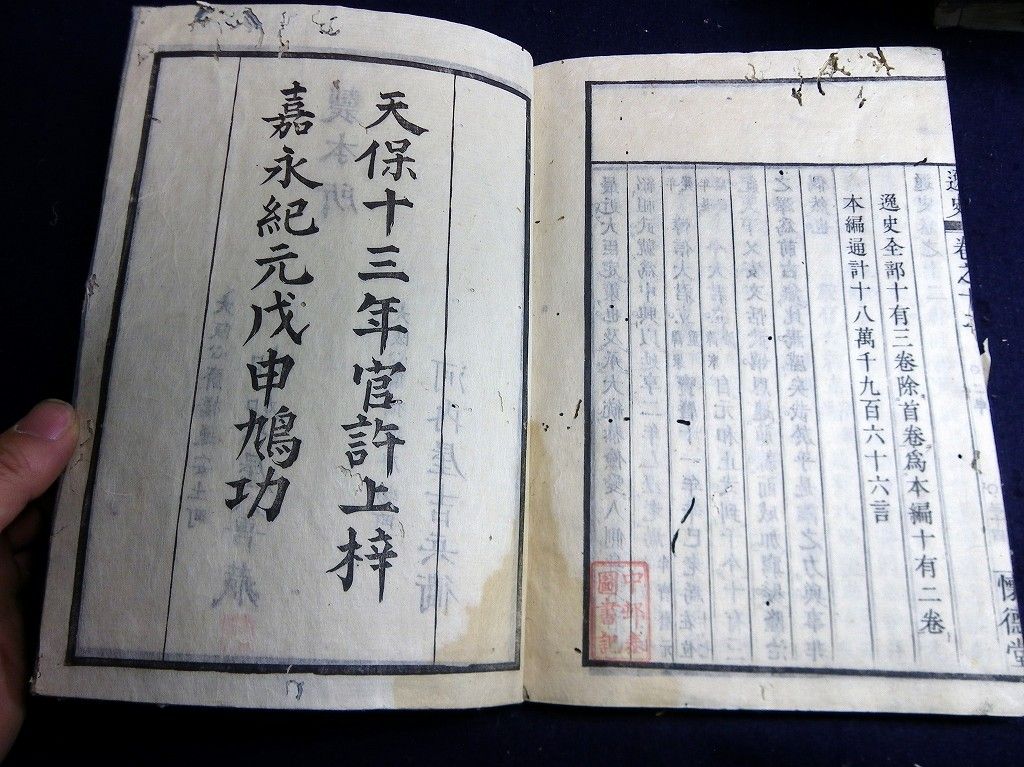 逸史 卷之十二
逸史全部十有三卷除首卷爲本編十有二卷
本編通計十八萬千九百六十六言
懷德堂
圖書記
天保十三年官許上梓
嘉永紀元戊申鳩功